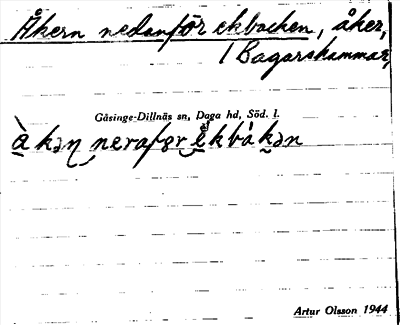 Åkern nedanför ekbacken, åker,
1 Bagarshammar,
Gåsinge-Dillnäs sn, Daga hd, Söd. l.
Artur Olsson 1944